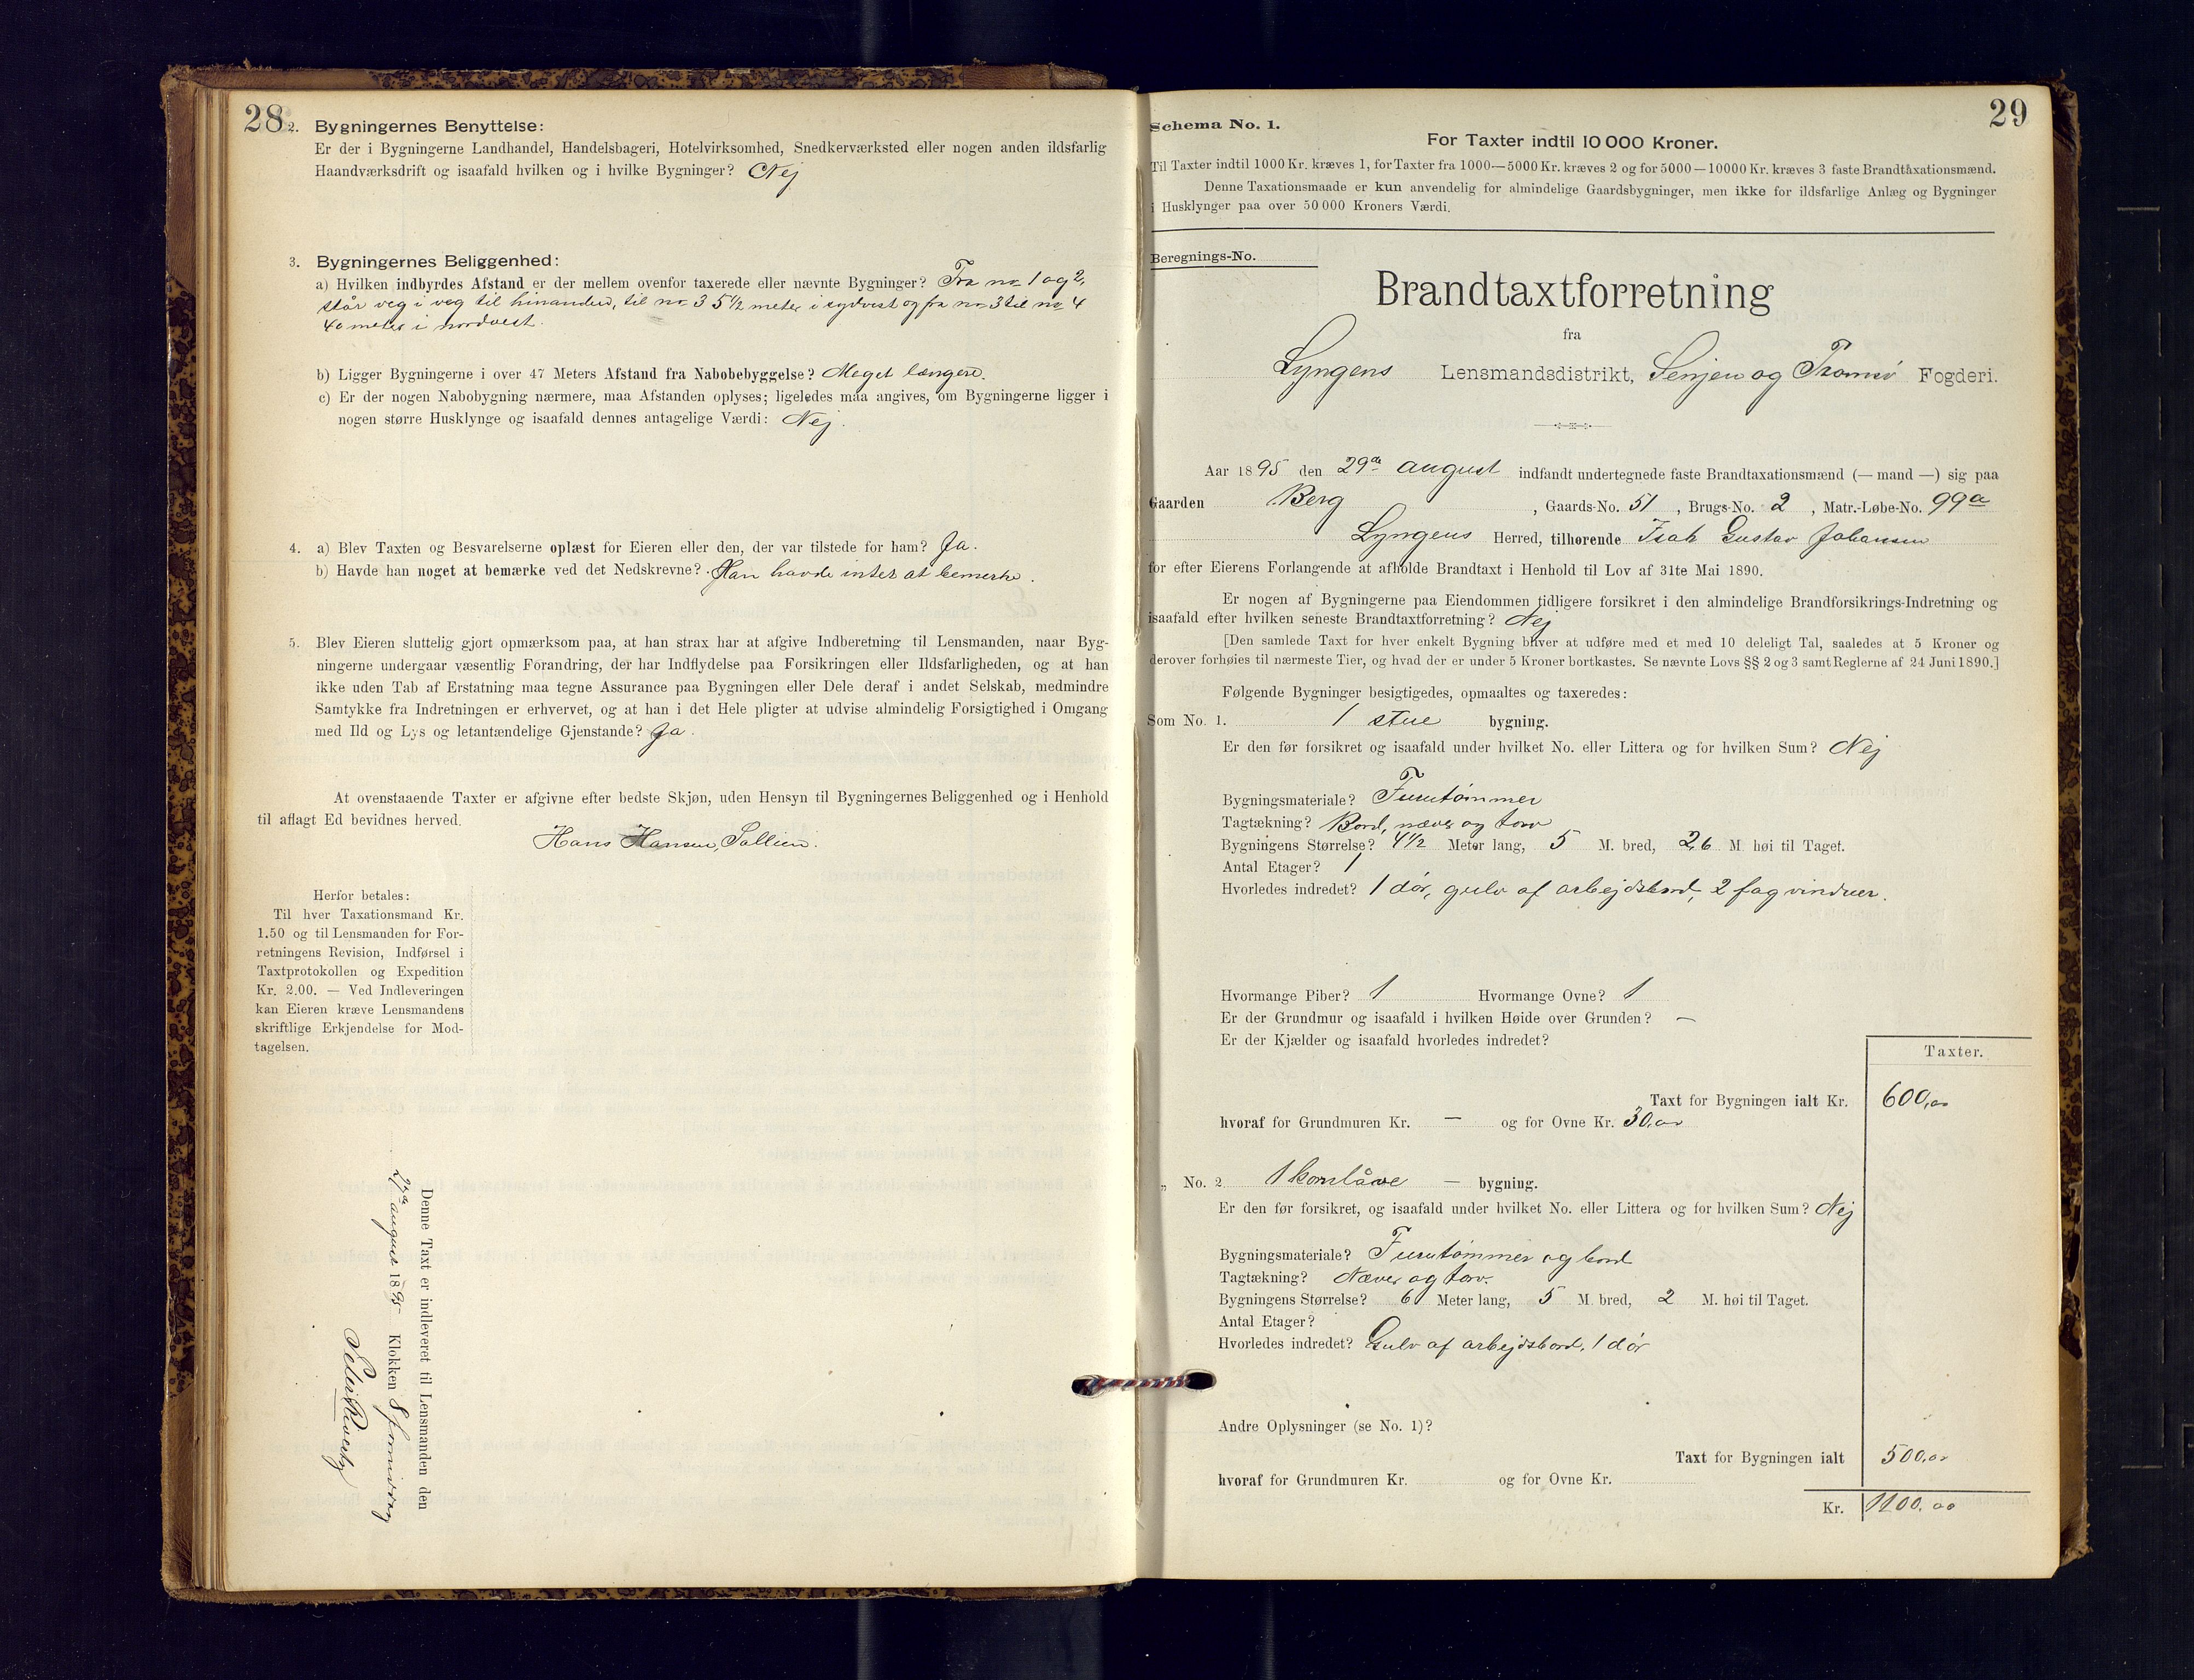 28
2. Bygningernes Benyttelse:
Er der i Bygningerne Landhandel, Handelsbageri, Hotelvirksomhed, Snedkerværksted eller nogen anden ildsfarlig
Haandværksdrift og isaafald hvilken og i hvilke Bygninger? Nej
3. Bygningernes Beliggenhed:
a) Hvilken indbyrdes Afstand er der mellem ovenfor taxerede eller nævnte Bygninger? Fra no 1 og 2,
står veg i veg til hinanden, til no 3 5 1/2 meter i sydvest og fra no 3 til no 4
40 meter i nordvest.
b) Ligger Bygningerne i over 47 Meters Afstand fra Nabobebyggelse? Meget længere.
c) Er der nogen Nabobygning nærmere, maa Afstanden oplyses; ligeledes maa angives, om Bygningerne ligger i
nogen større Husklynge og isaafald dennes antagelige Værdi: Nej.
4. a) Blev Taxten og Besvarelserne oplæst for Eieren eller den, der var tilstede for ham? Ja.
b) Havde han noget at bemærke ved det Nedskrevne? Han havde intet at bemerke.
5. Blev Eieren sluttelig gjort opmærksom paa, at han strax har at afgive Indberetning til Lensmanden, naar Byg-
ningerne undergaar væsentlig Forandring, der har Indflydelse paa Forsikringen eller Ildsfarligheden, og at han
ikke uden Tab af Erstatning maa tegne Assurance paa Bygningen eller Dele deraf i andet Selskab, medmindre
Samtykke fra Indretningen er erhvervet, og at han i det Hele pligter at udvise almindelig Forsigtighed i Omgang
med Ild og Lys og letantændelige Gjenstande? Ja.
At ovenstaaende Taxter er afgivne efter bedste Skjøn, uden Hensyn til Bygningernes Beliggenhed og i Henhold
til aflagt Ed bevidnes herved.
Hans Hansen, Sallien.
Herfor betales:
Til hver Taxationsmand Kr.
1.50 og til Lensmanden for For-
retningens Revision, Indførsel i
Taxtprotokollen og Expedition
Kr. 2.00. — Ved Indleveringen
kan Eieren kræve Lensmandens
skriftlige Erkjendelse for Mod-
tagelsen.
Denne Taxt er indleveret til Lensmanden den
august 1895 Klokken 8 formiddag
29
Schema No. 1.
For Taxter indtil 10 000 Kroner.
Til Taxter indtil 1000 Kr. kræves 1, for Taxter fra 1000—5000 Kr. kræves 2 og for 5000—10000 Kr. kræves 3 faste Brandtaxationsmænd.
Denne Taxationsmaade er kun anvendelig for almindelige Gaardsbygninger, men ikke for ildsfarlige Anlæg og Bygninger
i Husklynger paa over 50 000 Kroners Værdi.
Beregnings-No.
Brandtaxtforretning
fra
Lyngens Lensmandsdistrikt, Senjen og Tromsø Fogderi.
Aar 1895 den 29de august indfandt undertegnede faste Brandtaxationsmænd (— mand —) sig paa
Gaarden Berg, Gaards-No. 51, Brugs-No. 2, Matr.-Løbe-No. 99a
Lyngens Herred, tilhørende Isak Gustav Johansen
for efter Eierens Forlangende at afholde Brandtaxt i Henhold til Lov af 31te Mai 1890.
Er nogen af Bygningerne paa Eiendommen tidligere forsikret i den almindelige Brandforsikrings-Indretning og
isaafald efter hvilken seneste Brandtaxtforretning? Nej
[Den samlede Taxt for hver enkelt Bygning bliver at udføre med et med 10 deleligt Tal, saaledes at 5 Kroner og
derover forhøies til nærmeste Tier, og hvad der er under 5 Kroner bortkastes. Se nævnte Lovs §§ 2 og 3 samt Reglerne af 24 Juni 1890.]
Følgende Bygninger besigtigedes, opmaaltes og taxeredes:
Som No. 1. 1 stue bygning.
Er den før forsikret og isaafald under hvilket No. eller Littera og for hvilken Sum? Nej
Bygningsmateriale? Furutømmer
Tagtækning? Bord, næver og torv
Bygningens Størrelse? 4 1/2 Meter lang, 5 M. bred, 2,6 M. høi til Taget.
Antal Etager? 1
Hvorledes indredet? 1 dør, gulv af arbejdsbord, 2 fag vinduer.
Hvormange Piber? 1 Hvormange Ovne? 1
Er der Grundmur og isaafald i hvilken Høide over Grunden? —
Er der Kjælder og isaafald hvorledes indredet?
Taxter.
Taxt for Bygningen ialt Kr. 600,00
hvoraf for Grundmuren Kr. — og for Ovne Kr. 30,00
„ No. 2 1 kornlåve — bygning.
Er den før forsikret, og isaafald under hvilket No. eller Littera og for hvilken Sum? Nej
Bygningsmateriale? Furutømmer og bord
Tagtækning? Næver og torv.
Bygningens Størrelse? 6 Meter lang, 5 M. bred, 2 M. høi til Taget.
Antal Etager?
Hvorledes indredet? Gulv af arbejdsbord, 1 dør
Andre Oplysninger (se No. 1)?
Taxt for Bygningen ialt 500,00
hvoraf for Grundmuren Kr. og for Ovne Kr.
Kr. 1100,00